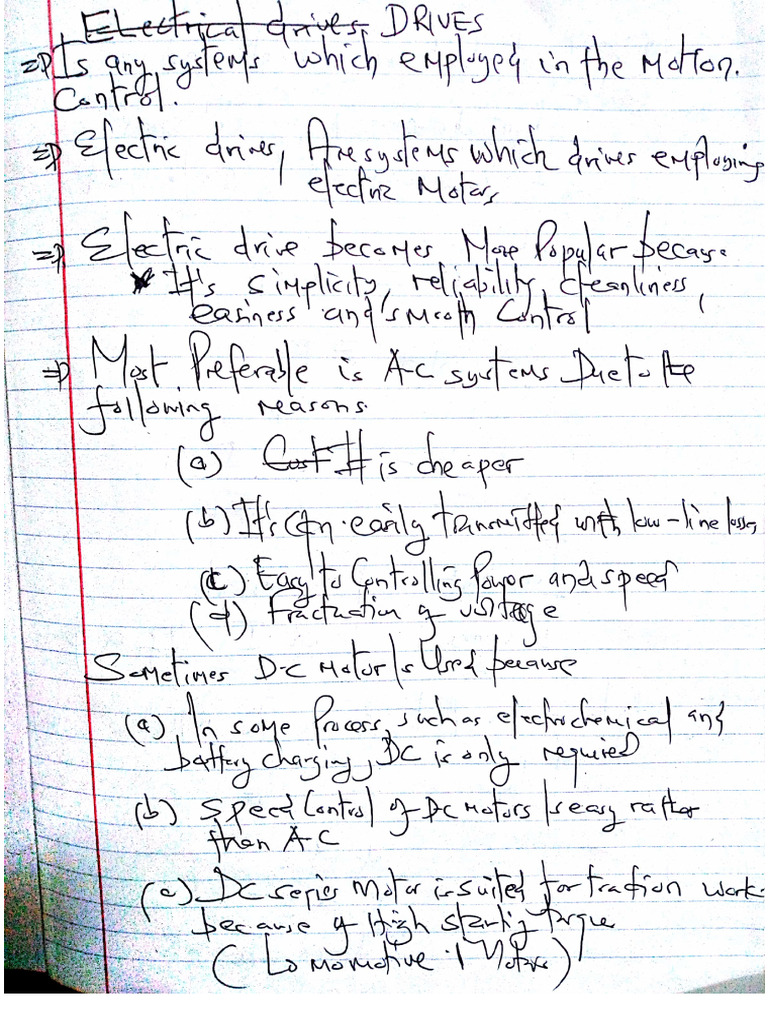 Electrical drives, DRIVES
⇒ Is any systems which employed in the Motion.
Control.
⇒ Electric drives, Are systems which drives employing
electric Motors,
⇒ Electric drive becomes More Popular because
* It's simplicity, reliability, cleanliness,
easiness and smooth Control
⇒ Most Preferable is A-C systems Due to the
following reasons.
(a) Cost It is cheaper
(b) It's can easily transmitted with low-line losses
(c) Easy to Controlling Power and speed
(d) of voltage
Sometimes D-C Motor Is Used because
(a) In some Process, such as electrochemical and
battery charging, DC is only required
(b) Speed Control of DC Motors Is easy rather
than A-C
(c) DC series Motor is suited for traction work
because of High starting torque
(Lomomotive